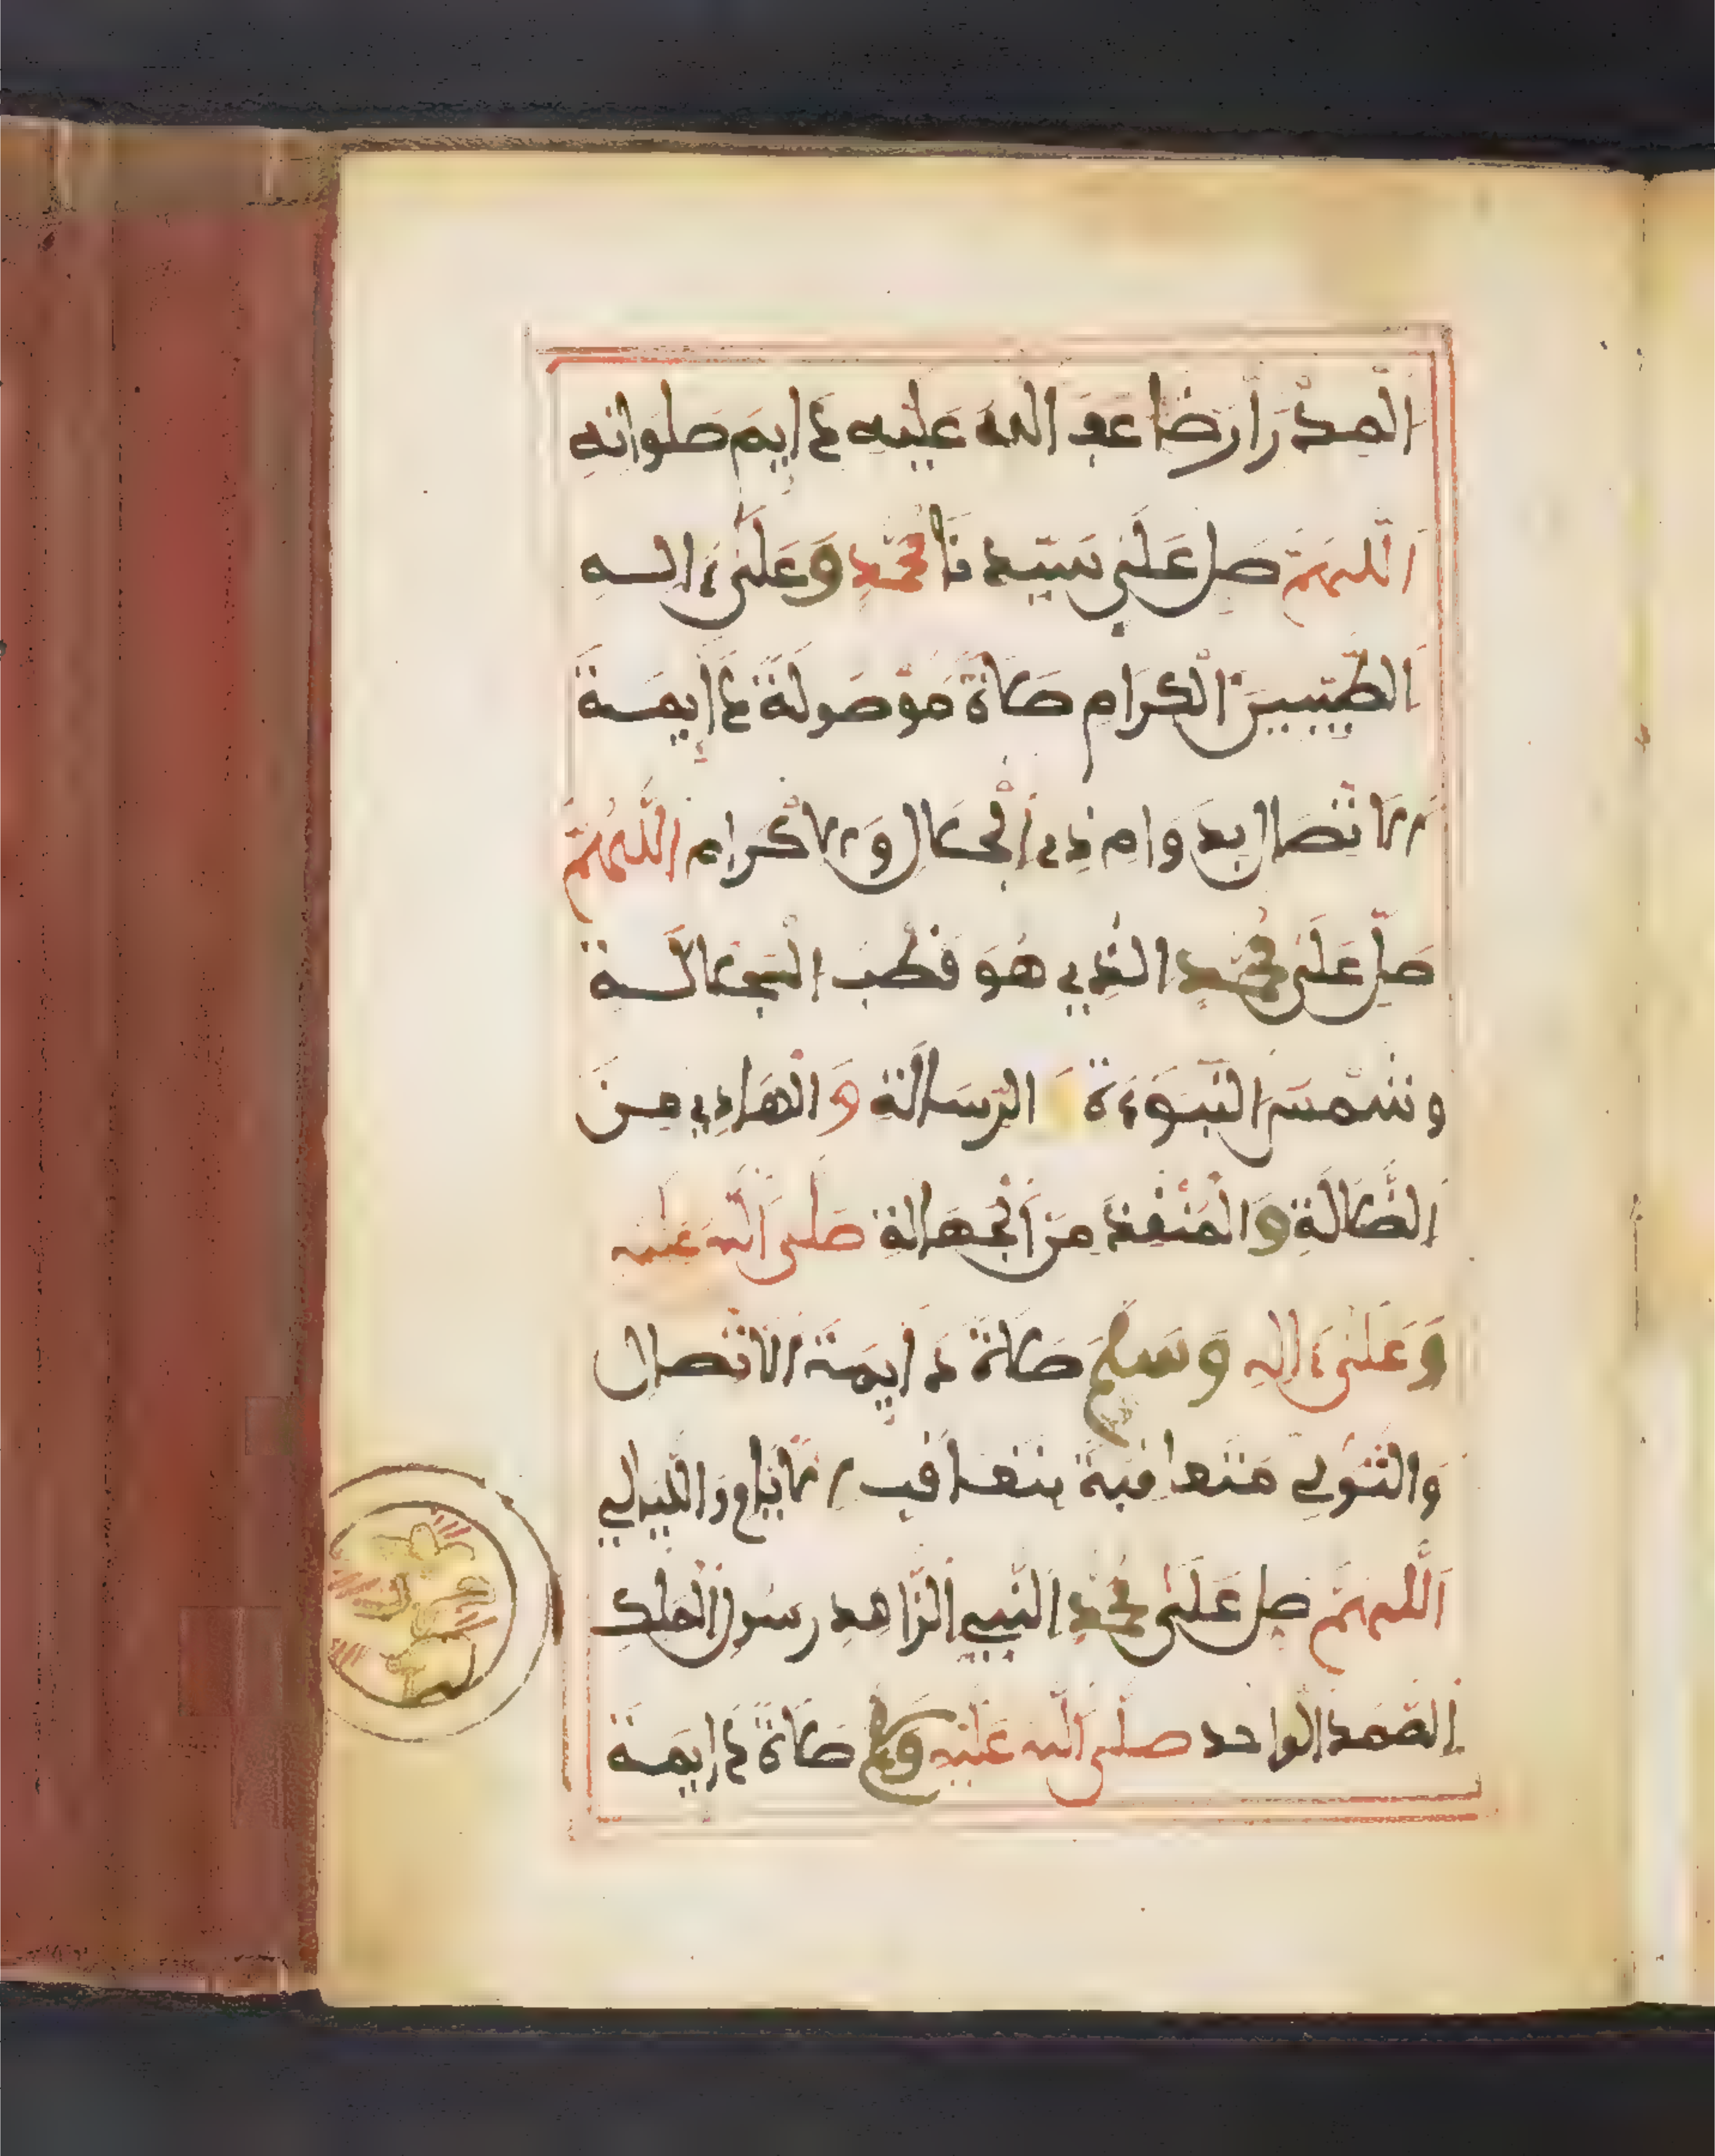 المدرارضاعف الله عليه دايم صلواته
اللهم صل على سيدنا محمد وعلى ءاله
الطيبين الكرام صلاة موصولة دايمة
الاتصال بدوام ذي الجلال والاكرام اللهم
صل على محمد الذي هو قطب الجلالة
وشمس النبوءة و الرسالة والهادي من
الضلالة والمنقذ من الجهالة صلى الله عليه
وعلى ءاله وسلم صلاة دايمة الاتصال
والتولي متعاقبة بتعاقب الايام والليالي
اللهم صل على محمد النبي الزاهد رسول الملك
الصمد الواحد صلى الله عليه وسلم صلاة دايمة